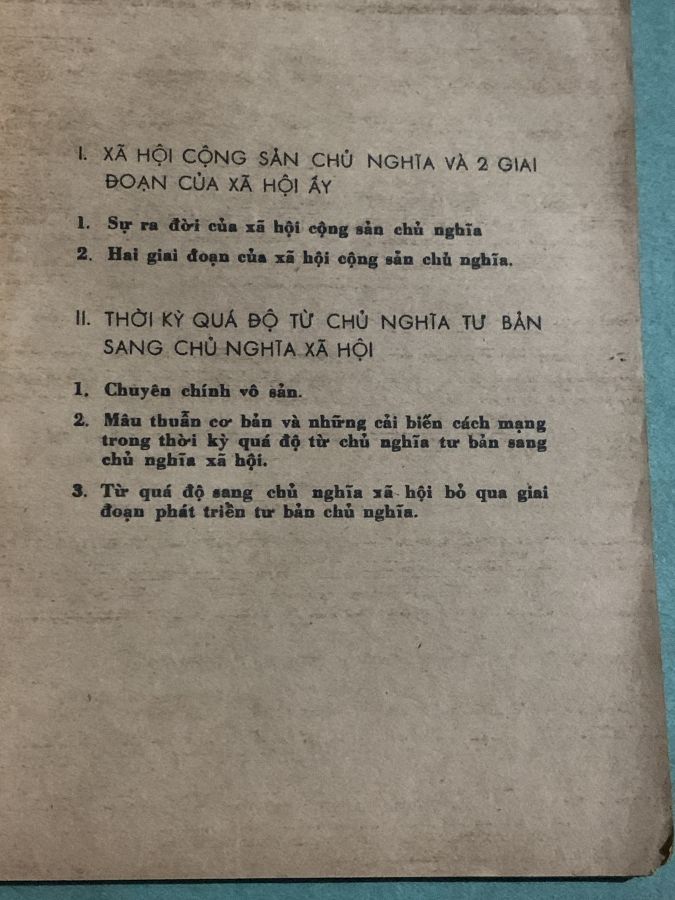 I. XÃ HỘI CỘNG SẢN CHỦ NGHĨA VÀ 2 GIAI
ĐOẠN CỦA XÃ HỘI ẤY
1. Sự ra đời của xã hội cộng sản chủ nghĩa
2. Hai giai đoạn của xã hội cộng sản chủ nghĩa.
II. THỜI KỲ QUÁ ĐỘ TỪ CHỦ NGHĨA TƯ BẢN
SANG CHỦ NGHĨA XÃ HỘI
1. Chuyên chính vô sản.
2. Mâu thuẫn cơ bản và những cải biến cách mạng
trong thời kỳ quá độ từ chủ nghĩa tư bản sang
chủ nghĩa xã hội.
3. Từ quá độ sang chủ nghĩa xã hội bỏ qua giai
đoạn phát triển tư bản chủ nghĩa.